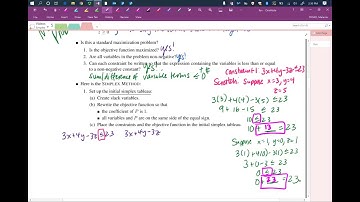 • Is this a standard maximization problem? yes!
1. Is the objective function maximized? yes!
2. Are all variables in the problem non-negative? yes!
3. Can each constraint be written so that the expression containing the variables is less than or equal to a non-negative constant? yes!
Sum/difference of variable terms ≤ 0
• Here is the SIMPLEX METHOD:
1. Set up the initial simplex tableau:
(a) Create slack variables.
(b) Rewrite the objective function so that
• the coefficient of P is 1.
• all variables and P are on the same side of the equal sign.
(c) Place the constraints and the objective function in the initial simplex tableau.
3x+4y-3z ≤ 23 3x+4y-3z
Constraint 1 3x+4y-3z ≤ 23
Scratch Suppose x=3, y=4
z=5
3(3)+4(4)-3(5) ≤ 23
9+16-15 ≤ 23
10 ≤ 23
10 + 13 = 23
Suppose x=1, y=0, z=1
3(1)+4(0)-3(1) ≤ 23
3+0-3 ≤ 23
0 ≤ 23
0 + 23 = 23